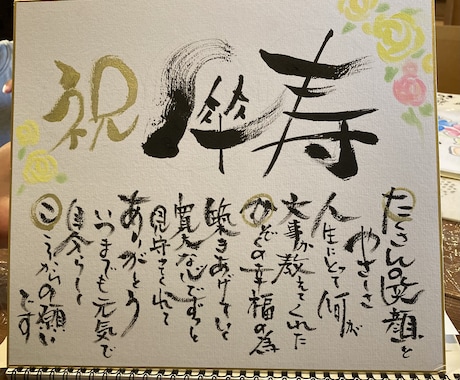 祝 傘寿
たくさんの笑顔と
やさしさ
人生にとって何が
大事か教えてくれた
かぞくの幸福の為
築きあげて
寛大な心でずっと
見守ってくれて
ありがとう
いつまでも元気で
自分らしく
こころからの願い
です